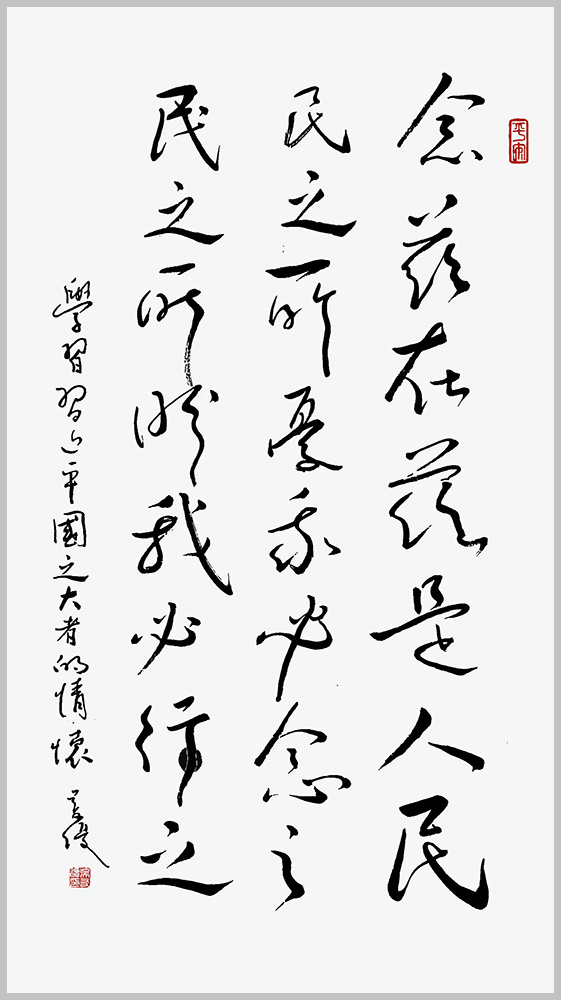 念兹在兹是人民
民之所憂我必念之
民之所盼我必行之
學習習近平國之大者的情懷